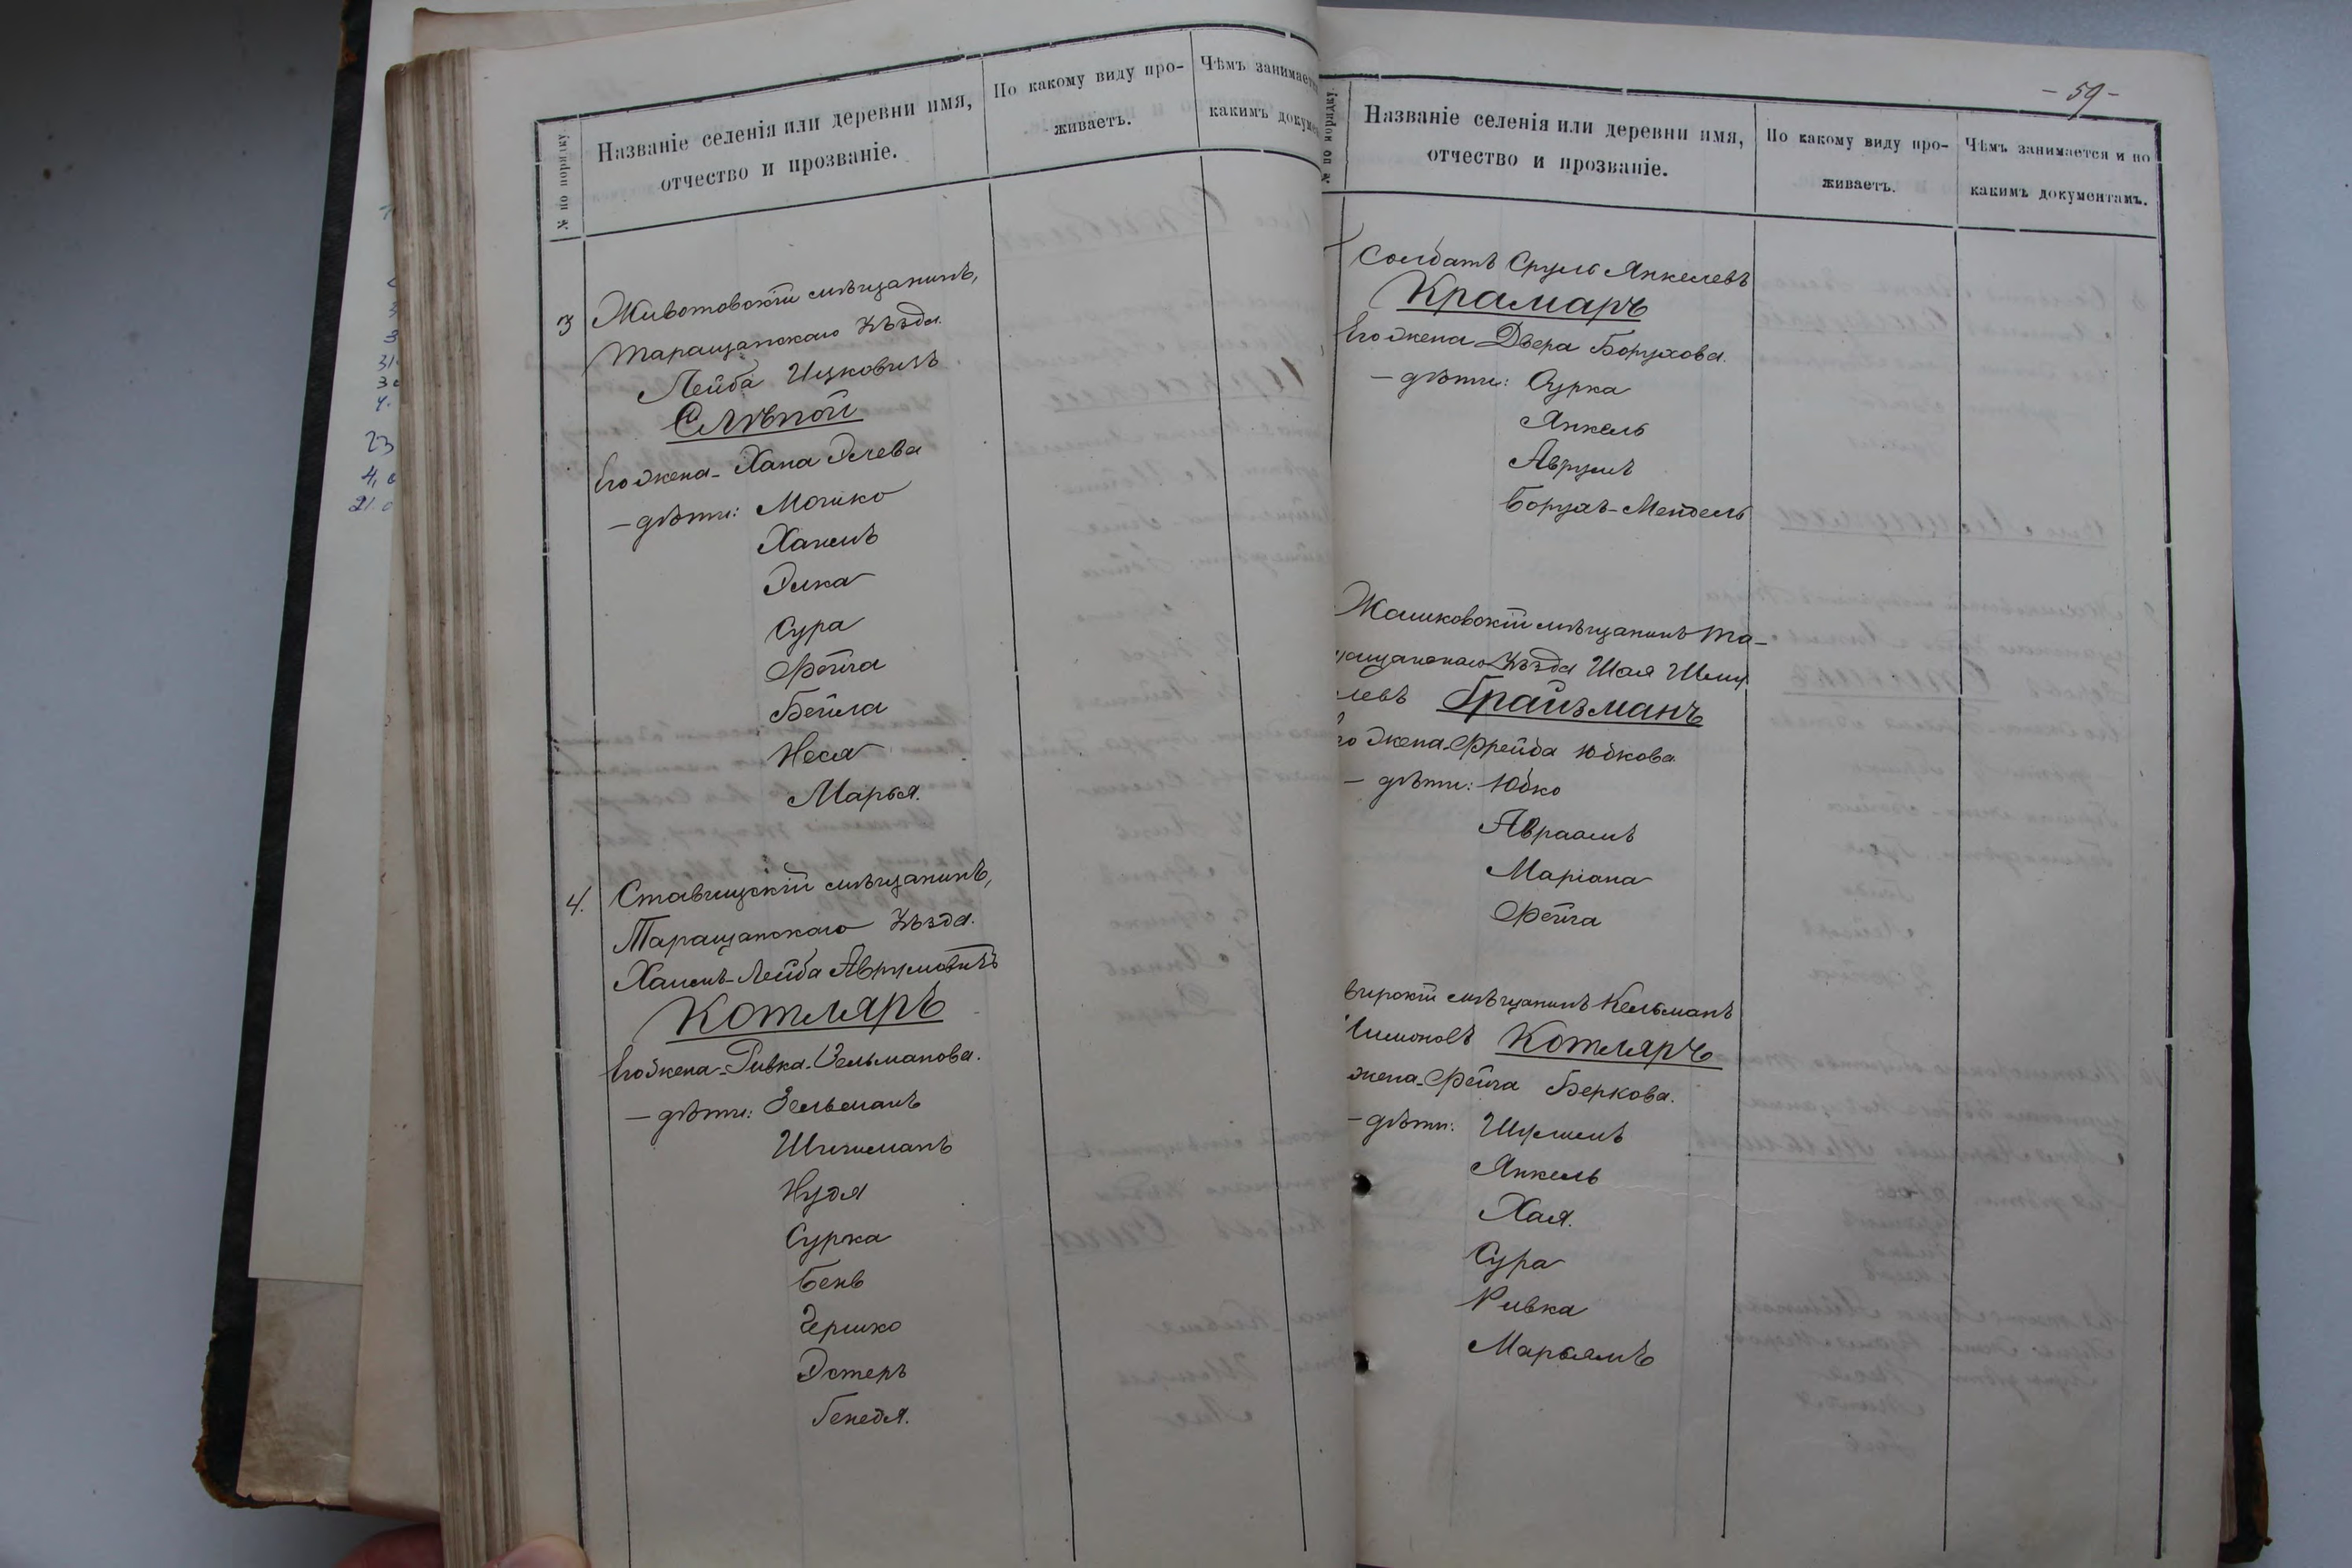 № по порядку.
Названіе селенія или деревни имя,
отчество и прозваніе.
По какому виду про-
живаетъ.
Чѣмъ занимает
какимъ докуме
3
Животовскій мѣщанинъ,
Таращанскаго уѣзда.
Лейба Ицковичъ
Слѣпой
Его жена - Хана Элева
- дѣти: Мошко
Хаимъ
Элка
Сура
Фейга
Бейла
Неся
Марья.
4.
Ставищскій мѣщанинъ,
Таращанскаго уѣзда.
Хаимъ-Лейба Аврумовичъ
Котляръ
Его жена - Ривка Зельманова.
- дѣти: Зельманъ
Нудя
Сурка
Бенъ
Гершко
Эстеръ
Генедя.
- 59 -
№ по порядку
Названіе селенія или деревни имя,
отчество и прозваніе.
По какому виду про-
живаетъ.
Чѣмъ занимается и по
какимъ документамъ.
Солдатъ Сруль Янкелевъ
Крамаръ
Его жена Двера Борухова.
- дѣти: Сурка
Янкель
Аврумъ
Борухъ-Мендель
Жашковскій мѣщанинъ Та-
ращанскаго уѣзда Шая Шму
левъ Грайзманъ
го жена - Фрейда Юдкова
- дѣти: Юдко
Авраамъ
Маріана
Фейга
мѣщанинъ Кельманъ
Шимоновъ Котляръ
жена - Фейга Беркова.
- дѣти: Шулимъ
Янкель
Хая.
Сура
Ривка
Марьямъ